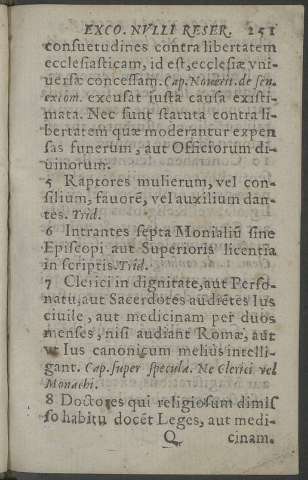 EXCO. NVLLI RESER. 251
consuetudines contra libertatem
ecclesiasticam, id est, ecclesiæ vni-
uersæ concessam. Cap. Nouerit. de sen.
exiom. excusat iusta causa existi-
mata. Nec sunt statuta contra li-
bertatem quæ moderantur expen
sas funerum, aut Officiorum di-
uinorum.
5 Raptores mulierum, vel con-
silium, fauorē, vel auxilium dan-
tes. Trid.
6 Intrantes septa Monialiū sine
Episcopi aut Superioris licentia
in scriptis. Trid.
7 Clerici in dignitate, aut Perso-
natu, aut Sacerdotes audiētes Ius
ciuile, aut medicinam per duos
menses, nisi audiant Romæ, aut
vt Ius canonicum melius intelli-
gant. Cap. super specula. Ne Clerici vel
Monachi.
8 Doctores qui religiosum dimis
so habitu docēt Leges, aut medi-
Q cinam.